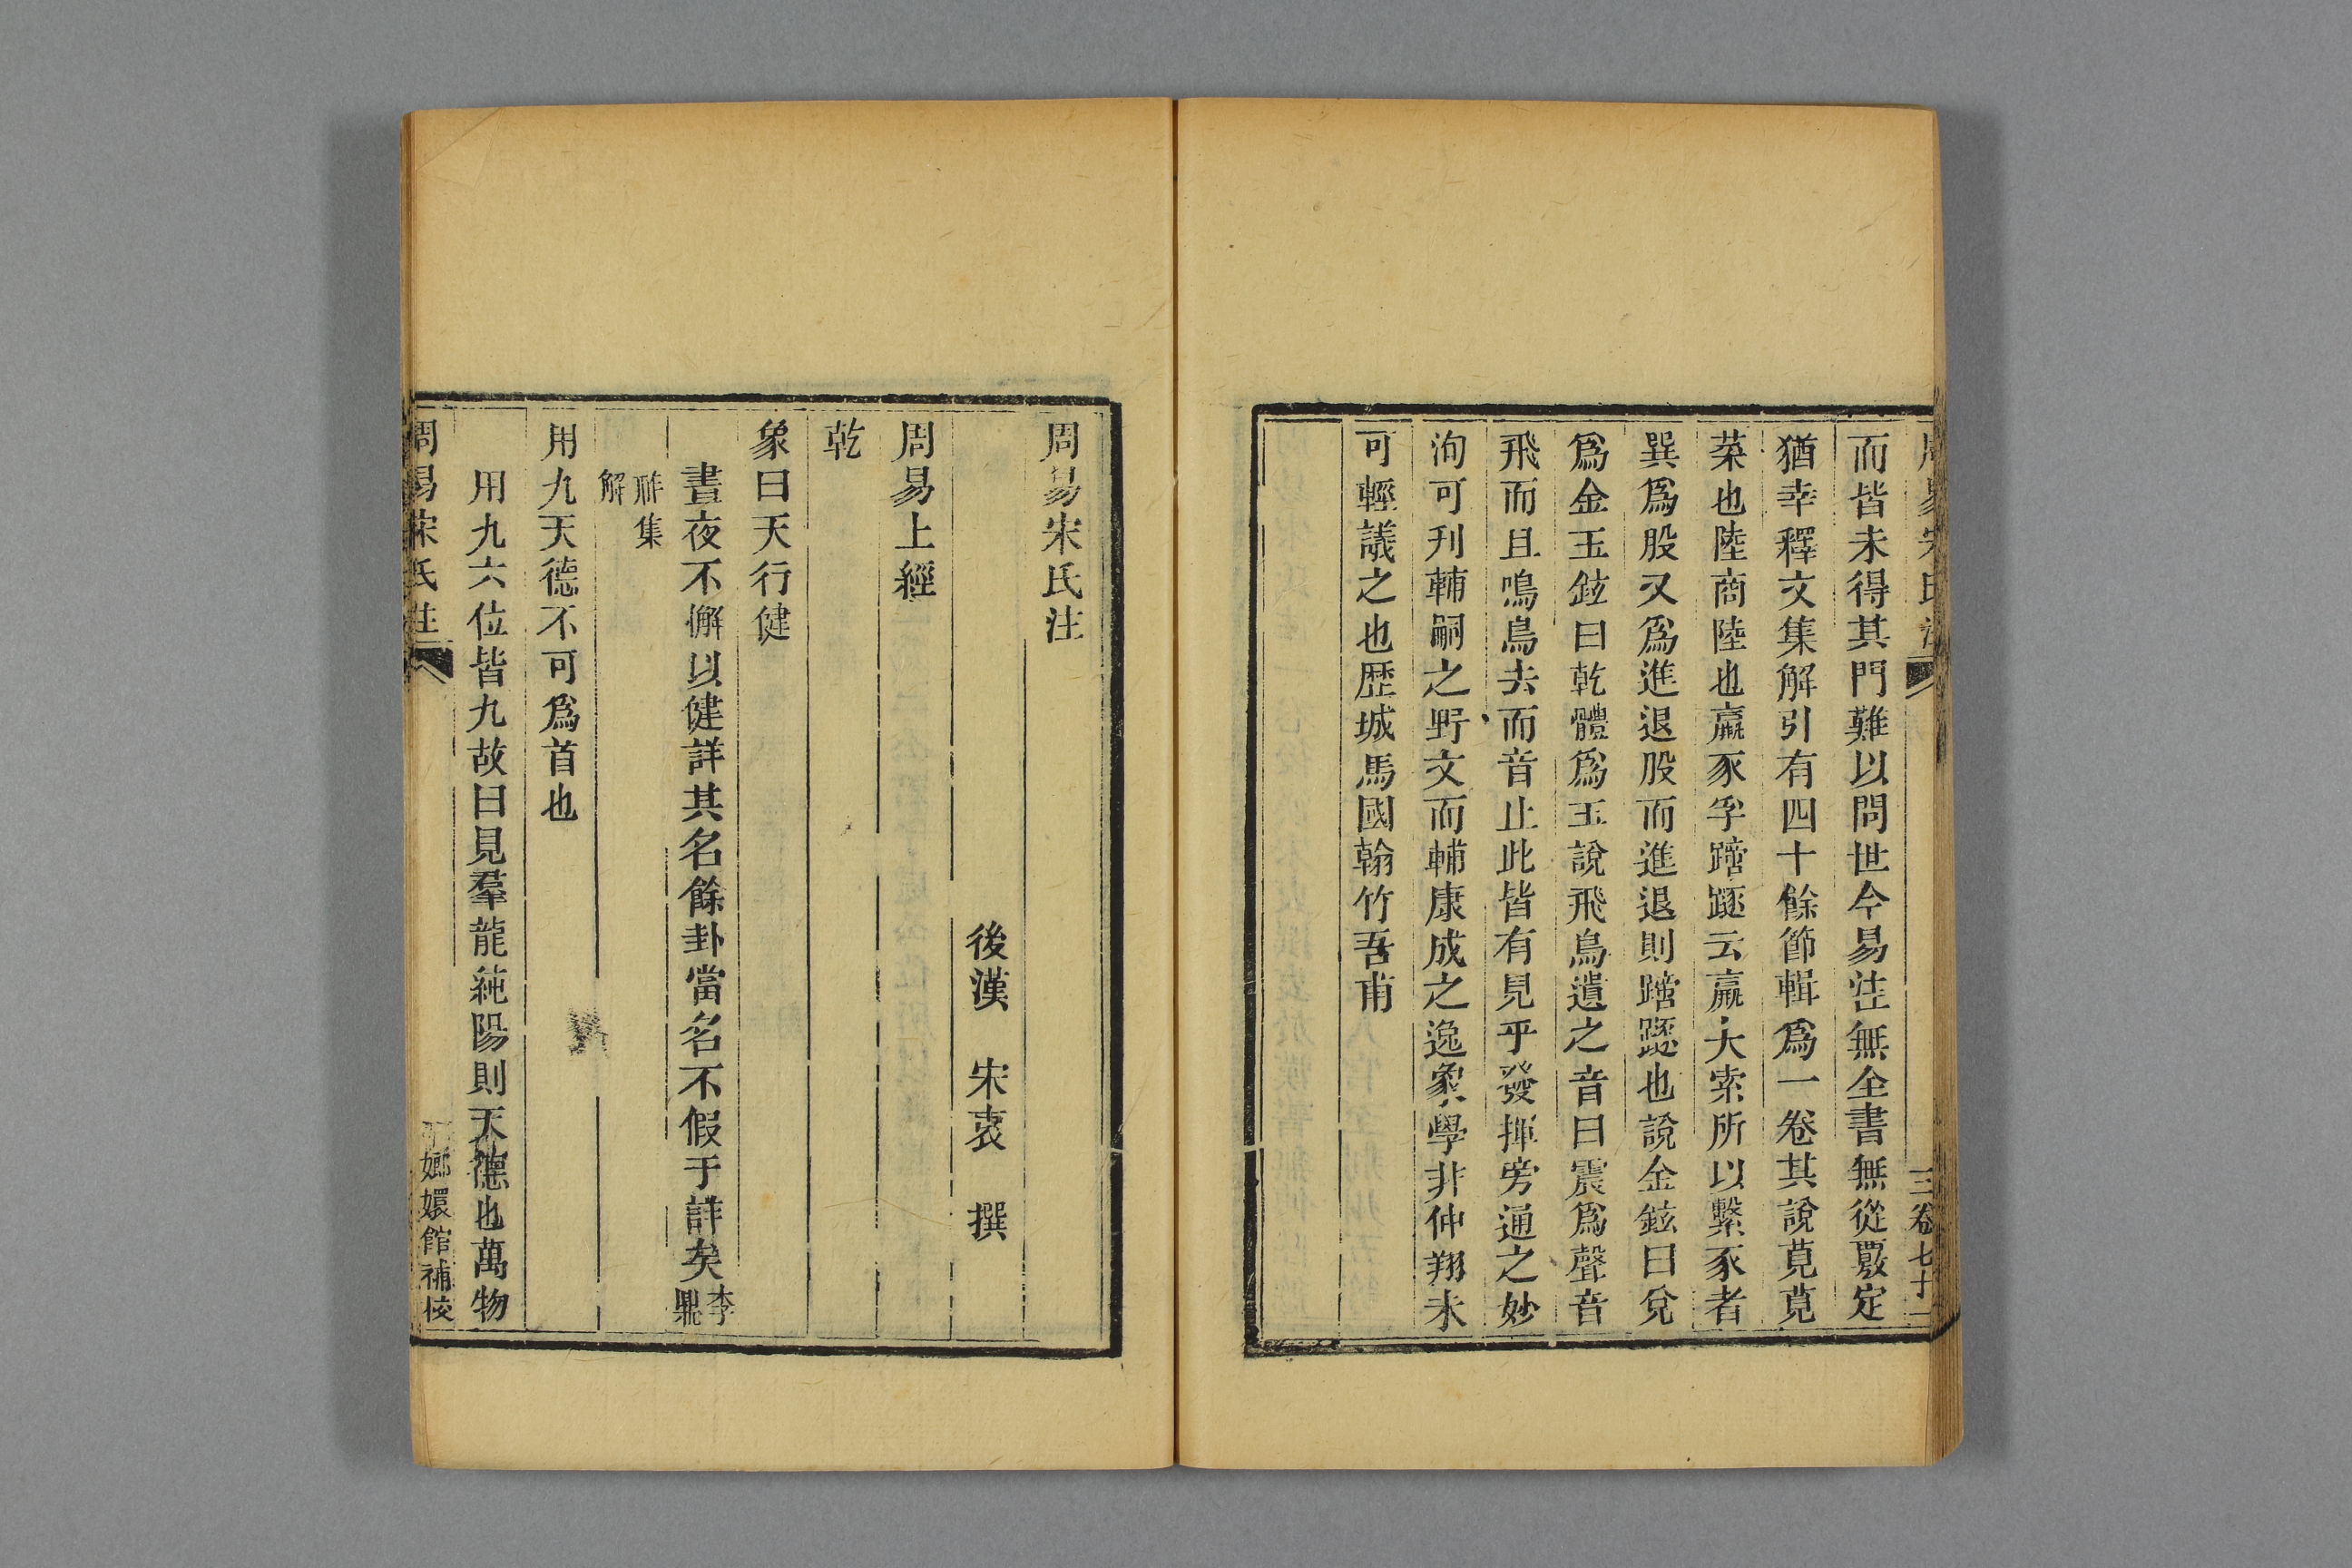 周易宋氏注
三 卷七十一
而皆未得其門難以問世今易注無全書無從覈定
猶幸釋文集解引有四十餘節輯爲一卷其說莧莧
菜也陸商陸也羸豕孚蹢躅云羸大索所以繫豕者
巽爲股又爲進退股而進退則蹢躅也說金鉉曰兌
爲金玉鉉曰乾體爲玉說飛鳥遺之音曰震爲聲音
飛而且鳴鳥去而音止此皆有見乎發揮旁通之妙
洵可刋輔嗣之野文而輔康成之逸象學非仲翔未
可輕議之也歷城馬國翰竹吾甫
周易宋氏注
後漢 宋衷 撰
周易上經
乾
象曰天行健
晝夜不懈以健詳其名餘卦當名不假于詳矣李鼎
祚集
解
用九天德不可爲首也
用九六位皆九故曰見羣龍純陽則天德也萬物
周易宋氏注
嫏嬛館補校